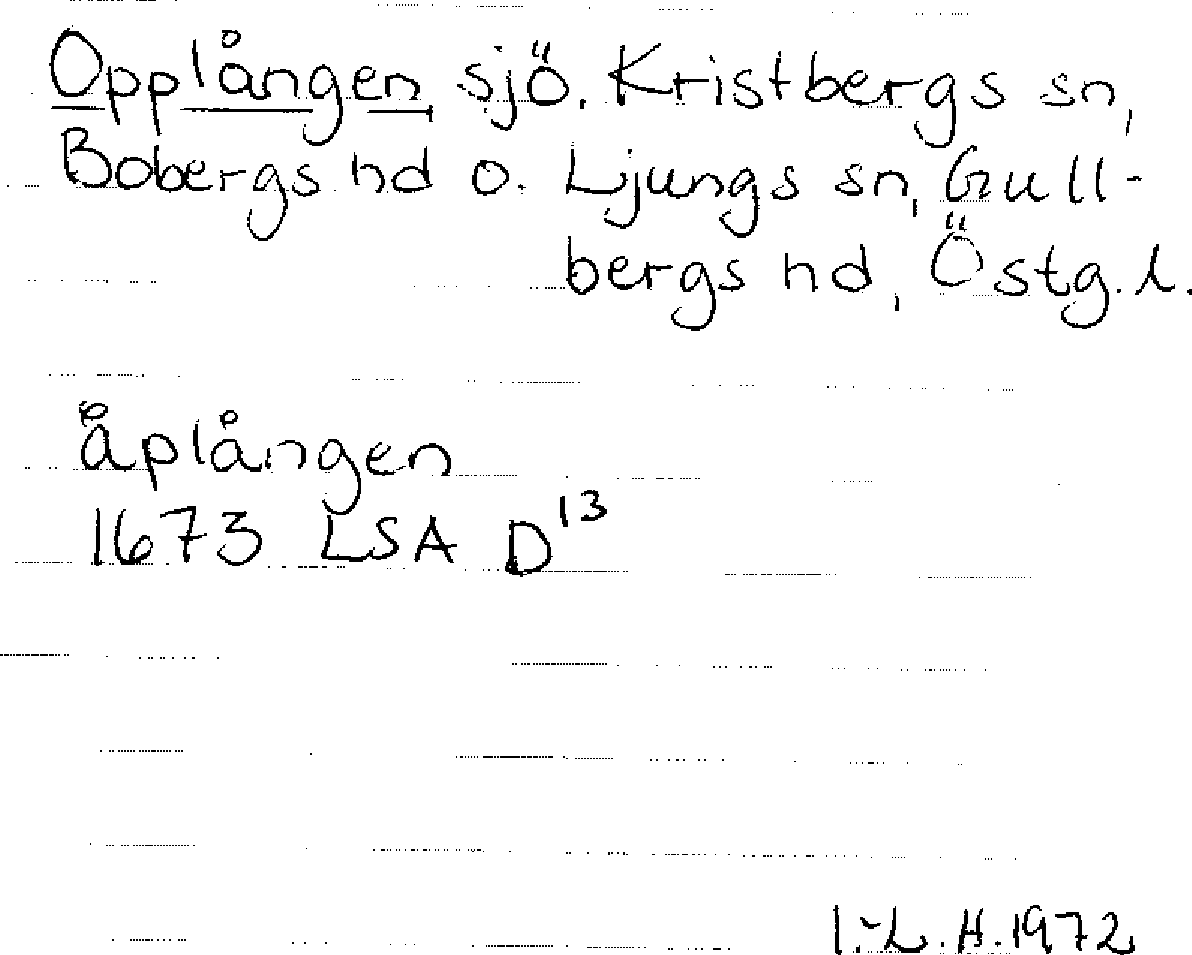 Opplången sjö. Kristbergs sn,
Bobergs hd o. Ljungs sn, Gull-
bergs hd, Östg. l.
Åplången
1673 LSA D13
I.-L. H. 1972